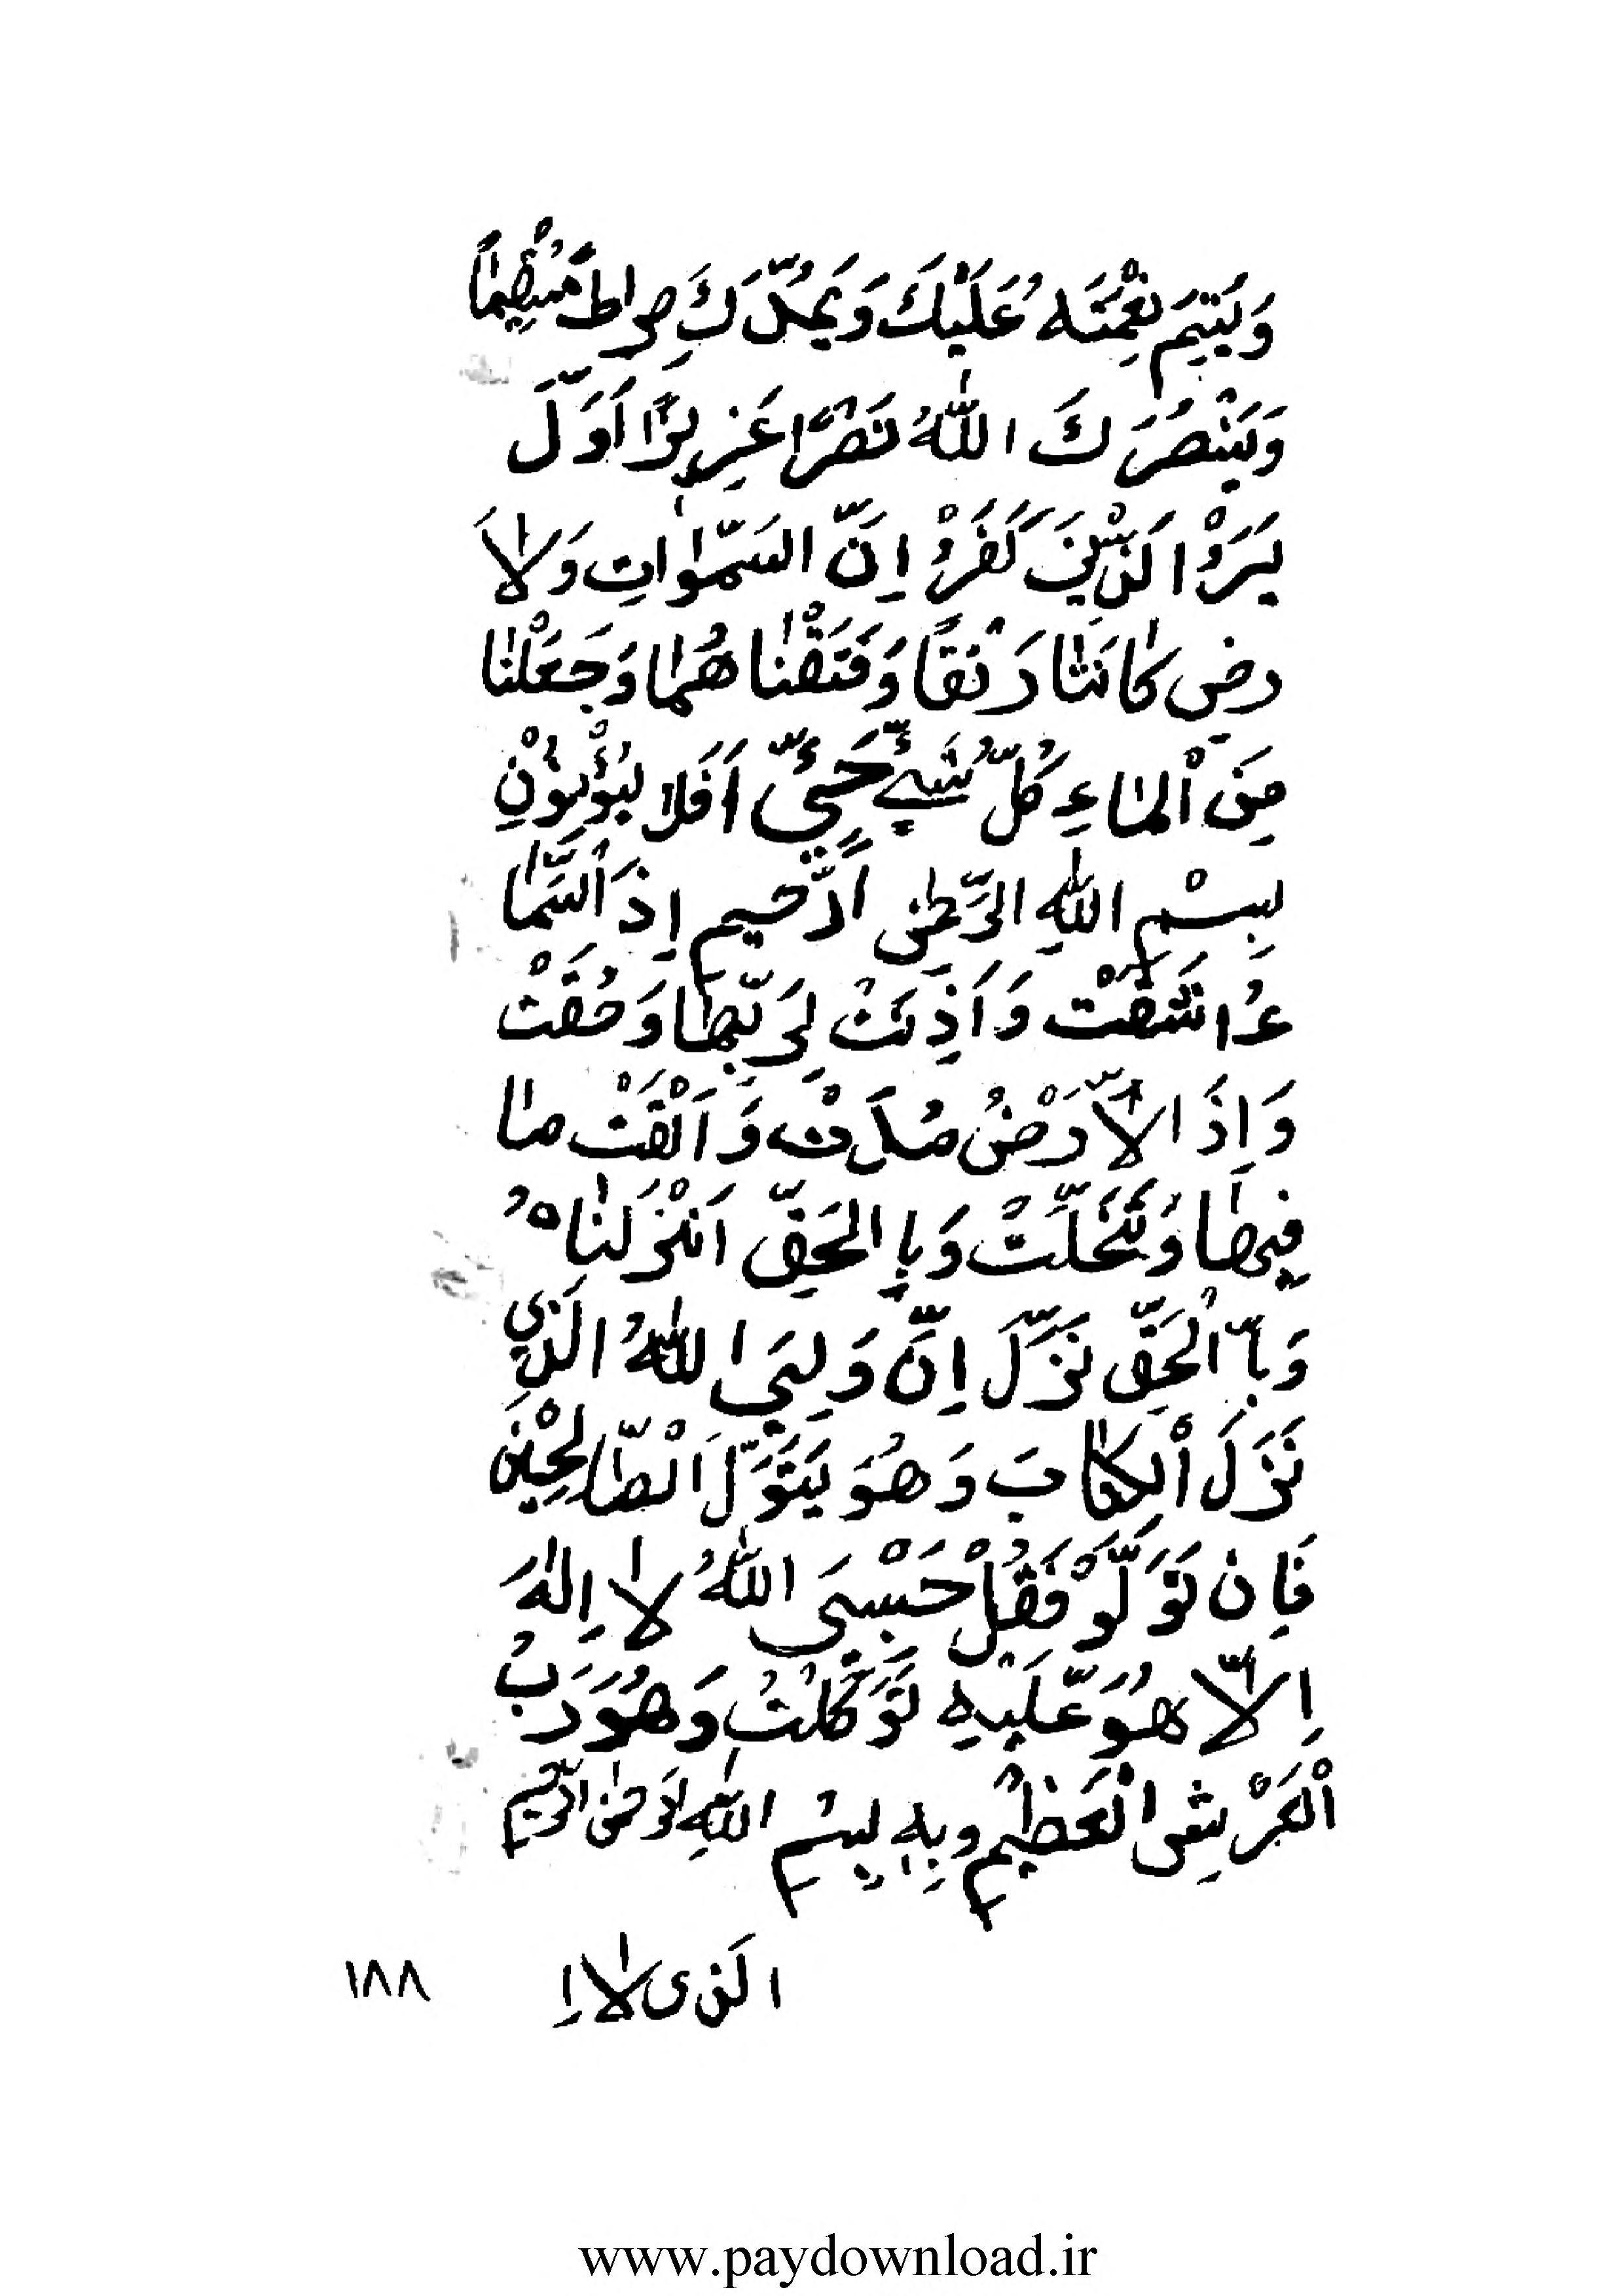 وَيُتِمَ نِعْمَتَهُ عَلَيْكَ وَيَهْدِّيَكَ صِراطَ مُسْتَقِيماً
وَيَنْصُرَكَ اللّٰهُ نَصْرًا عَزِيزًا اَوَلَّ
يَرَوْا اَلَّذِيْنَ كَفَرُوْ اِنَّ السَّمٰوٰاتِ وَلاَ
رضِ كٰانَتٰا رَتْقاً وَفَتَقْنٰاهُمٰا وَجَعَلْنٰا
مِنَ اْلمٰاءِ كُلِّ شَيءٍ حَيٍّ اَفَلا يُؤْمِنُوْنِ
بِسْمِ اللّٰهِ الرَّحْمٰنِ اَلرَّحيم اِذَ اَلسَّمٰا
ءُ انْشَقَتْ وَاَذِنَتْ لِرَبِّهٰا وَحُقَتْ
وَاِذَ الاَّرَضُ مُدَتْ وَاَلْقَتْ مٰا
فِيهٰا وَتَخَلَّتْ وَبِالحَقِّ اَنْزَلنٰاهُ
وَبِاّلْحَقِّ نَزَّلَ اِنَّ وَلِيَ اللّٰهُ الَذِي
نَزَلَ اْلكِتٰابَ وَهُوَ يَتَوَلَّ اَلْصّٰالِحْينَ
فَاِن تَوَلَّوْ فَقُلْ حَسْبِىَ اللّٰهُ لٰا اِلٰهَ
اِلاّٰ هُوَ عَّلَيهِ تَوَكَلْتُ وَهُوَ رَبُ
اْلعَرْشِ الْعَظيٖمِ وبِهِ بِسْمِ اللّٰهِ اَلرَحْمٰنِ الرَّحيم
الَذى لٰا اِ
١٨٨
www.paydownload.ir